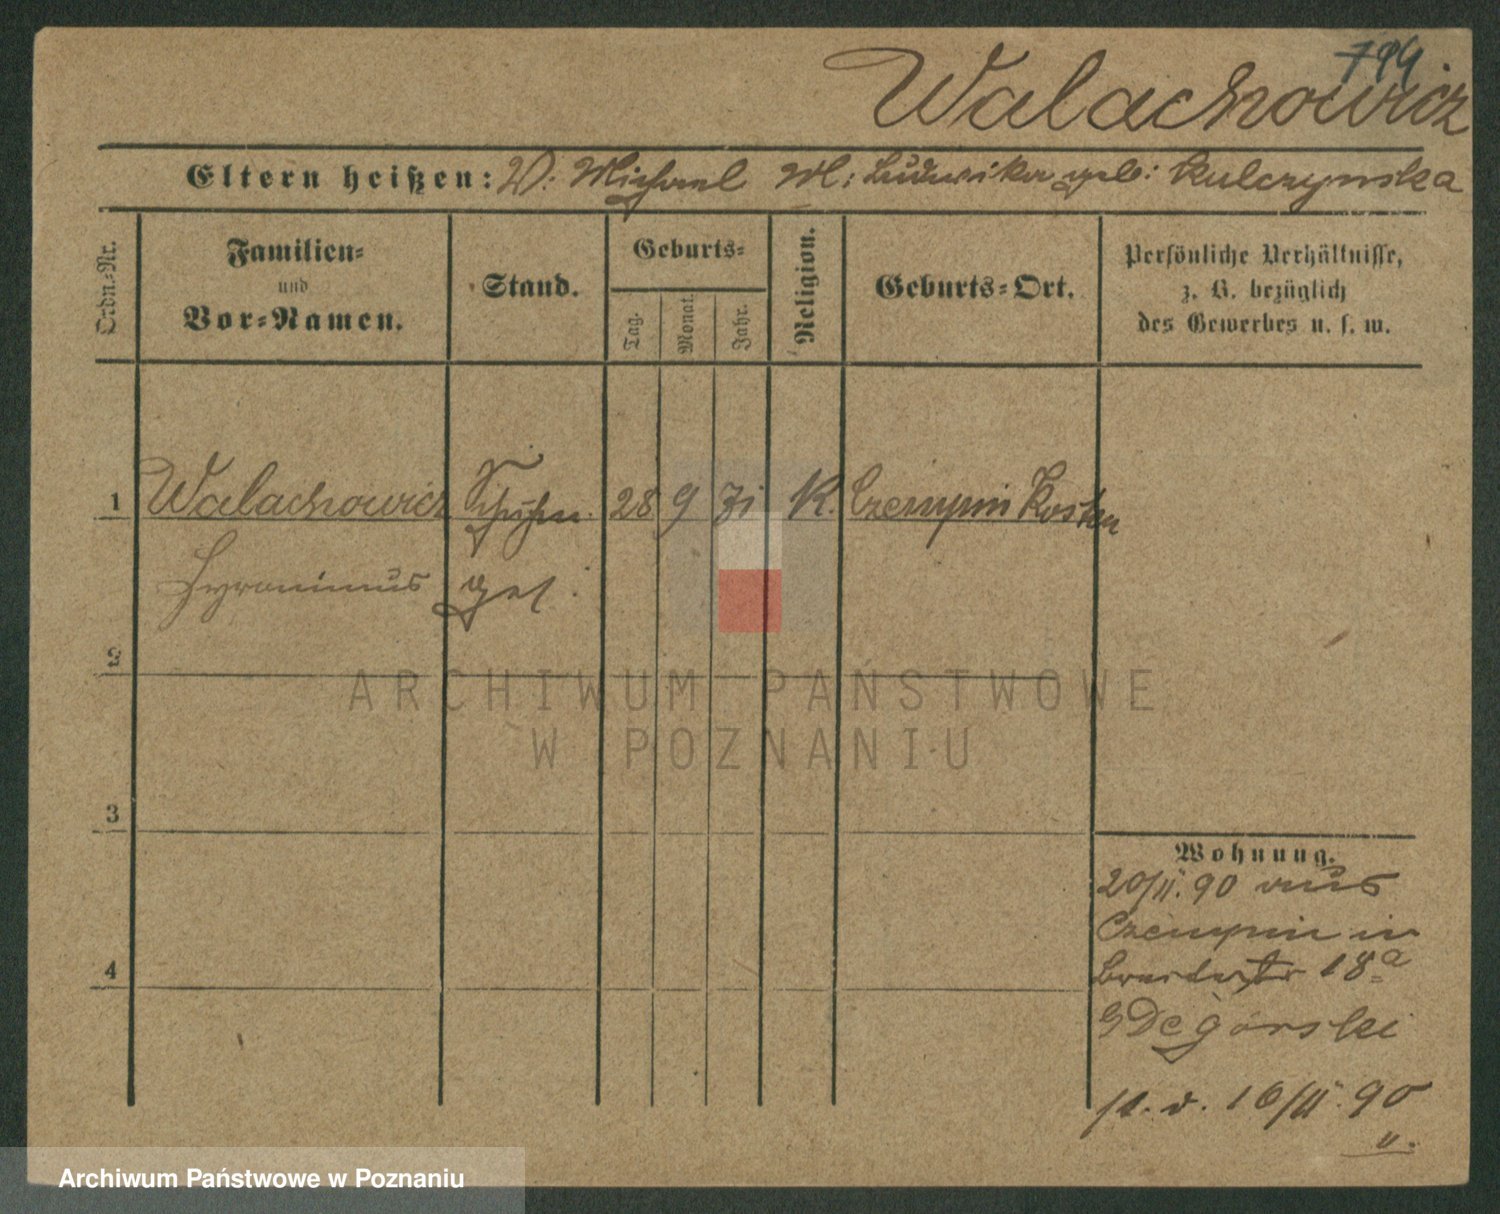 794
Walachowicz
Eltern heißen: V: Michael M: Ludwika geb: Kulczynska
Ordn.-Nr.
Familien-
und
Vor-Namen.
Stand.
Geburts-
Tag.
Monat.
Jahr.
Religion.
Geburts-Ort.
Persönliche Verhältnisse,
z. B. bezüglich
des Gewerbes u. s. w.
1 Walachowicz Schuhm. 28 9 71 K. Czempin Kosten
Hyronimus ges.
2
ARCHIWUM PAŃSTWOWE
W POZNANIU
3
Wohnung.
20/II. 90 aus
Czempin in
18a
4
Degórski
16/II. 90
Archiwum Państwowe w Poznaniu